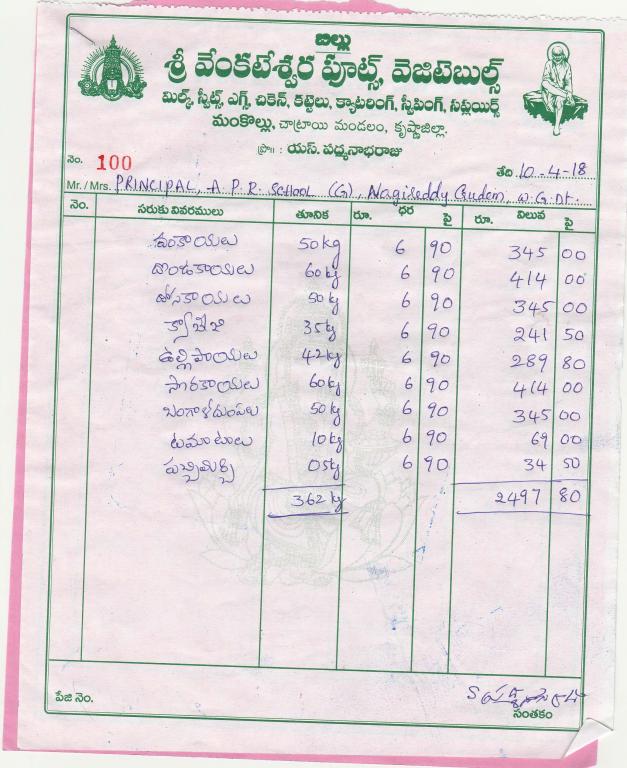 బిల్లు
శ్రీ వేంకటేశ్వర ఫ్రూట్స్, వెజిటెబుల్స్
మిల్క్, స్వీట్స్, ఎగ్స్, చికెన్, కట్టెలు, క్యాటరింగ్, స్వీపింగ్, సప్లయిర్స్
మంకొల్లు, చాట్రాయి మండలం, కృష్ణాజిల్లా.
ప్రొ॥ : యస్. పద్మనాభరాజు
నెం. 100 తేది 10-4-18
Mr./Mrs. PRINCIPAL, A.P.R. School (G), Nagireddy Gudem, W.G.Dt.
నెం. సరుకు వివరములు తూనిక రూ. ధర పై రూ. విలువ పై
వంకాయలు 50kg 6 90 345 00
దొండకాయలు 60kg 6 90 414 00
దోసకాయలు 50kg 6 90 345 00
క్యాబేజి 35kg 6 90 241 50
ఉల్లిపాయలు 42kg 6 90 289 80
సొరకాయలు 60kg 6 90 414 00
బంగాళదుంపలు 50kg 6 90 345 00
టమాటలు 10kg 6 90 69 00
పచ్చిమిర్చి 05kg 6 90 34 50
362kg 2497 80
పేజి నెం.
సంతకం